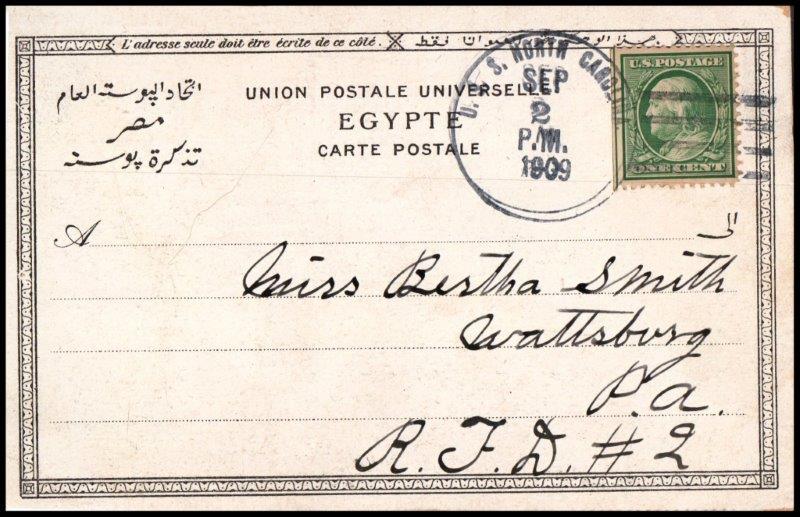 L'adresse seule doit être écrite de ce côté.
اتحاد البوسته العام
مصر
تذكرة بوسته
UNION POSTALE UNIVERSELLE
EGYPTE
CARTE POSTALE
U. S. S. NORTH CAROLINA
SEP
2
P.M.
1909
U.S. POSTAGE
ONE CENT
A
الى
Miss Bertha Smith
Wattsburg
P.a.
R.F.D. #2